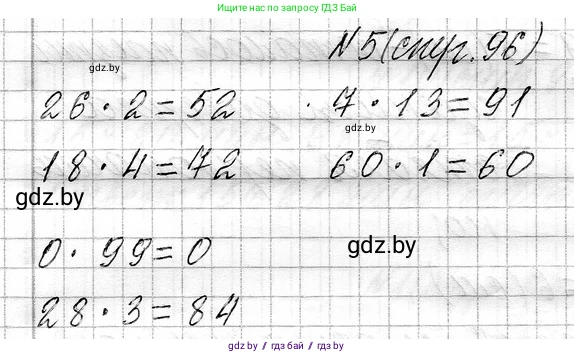 Пишите нам по запросу ГДЗ Бай
№5 (стр. 96)
gdz.by
26 · 2 = 52 7 · 13 = 91
gdz.by
18 · 4 = 72 60 · 1 = 60
gdz.by
0 · 99 = 0 gdz.by
28 · 3 = 84
gdz.by / гдз бай / gdz.by